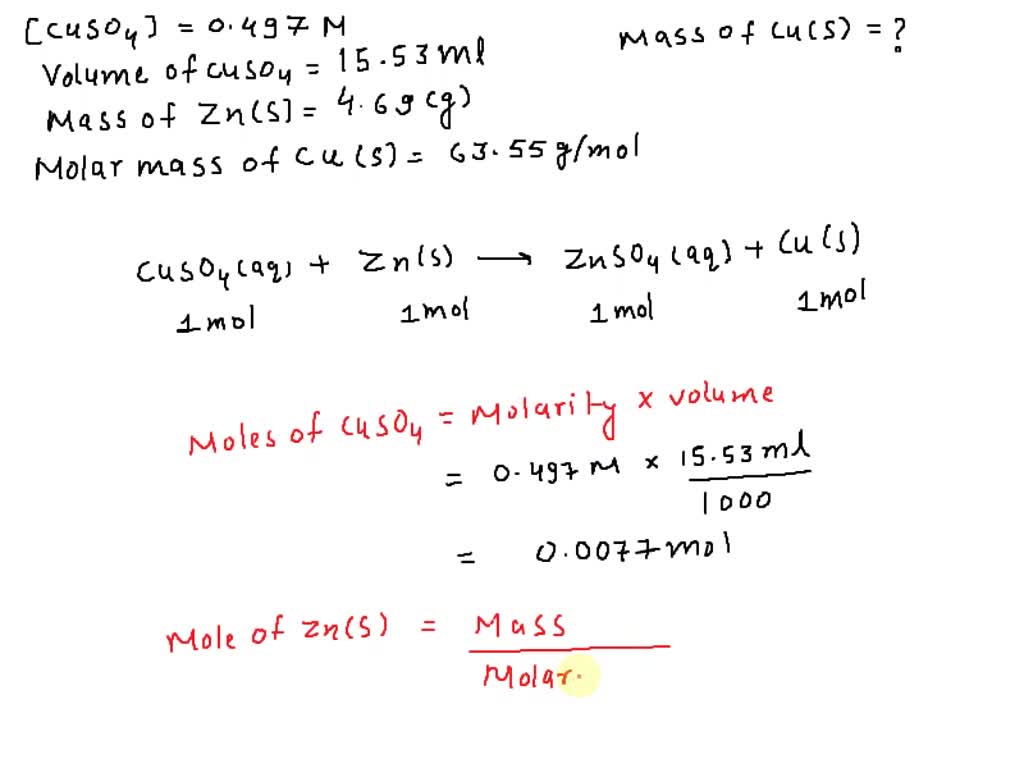 [CuSO4] = 0.497 M
Mass of Cu(s) = ?
Volume of CuSO4 = 15.53 ml
Mass of Zn(s] = 4.69 (g)
Molar mass of Cu(s) = 63.55 g/mol
CuSO4(aq) + Zn(s) → ZnSO4(aq) + Cu(s)
1mol 1mol 1mol 1mol
Moles of CuSO4 = Molarity x volume
= 0.497 M x 15.53 ml
1000
= 0.0077 mol
Mole of Zn(s) = Mass
Molar.